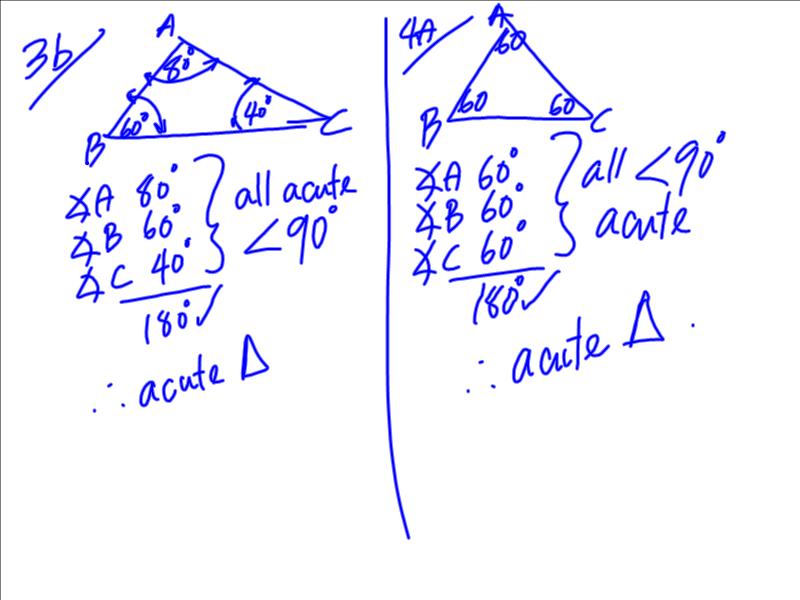 3b
A
80°
60°
40°
B
C
∡A 80°
∡B 60°
∡C 40°
180° ✓
all acute
< 90°
∴ acute Δ
4A
A
60
60
60
B
C
∡A 60°
∡B 60°
∡C 60°
180° ✓
all < 90°
acute
∴ acute Δ.